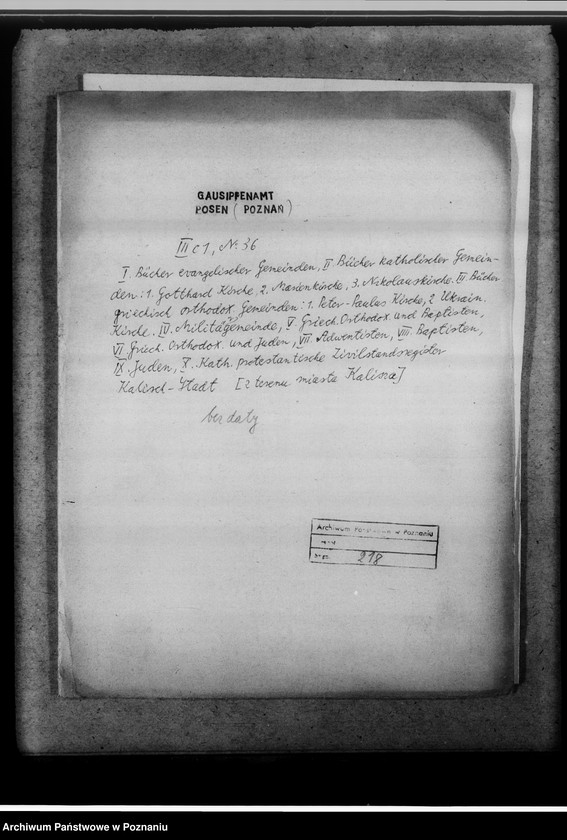 GAUSIPPENAMT
POSEN (POZNAŃ)
III c 1, Nr. 36
I. Bücher evangelischer Gemeinden, II Bücher katholischer Gemein-
den: 1. Gotthard Kirche, 2. Marienkirche, 3. Nikolauskirche. III. Bücher
griechisch orthodox. Gemeinden: 1. Peter-Paulus Kirche, 2 Ukrain.
Kirche. IV. Militärgemeinde, V. Griech. Orthodox. und Baptisten,
VI. Griech. Orthodox. und Juden, VII. Adwentisten, VIII. Baptisten,
IX. Juden, X. Kath. protestantische Zivilstandsregister
Kalisch-Stadt [z terenu miasta Kalisza]
bez daty
Archiwum Państwowe w Poznaniu
218
Archiwum Państwowe w Poznaniu